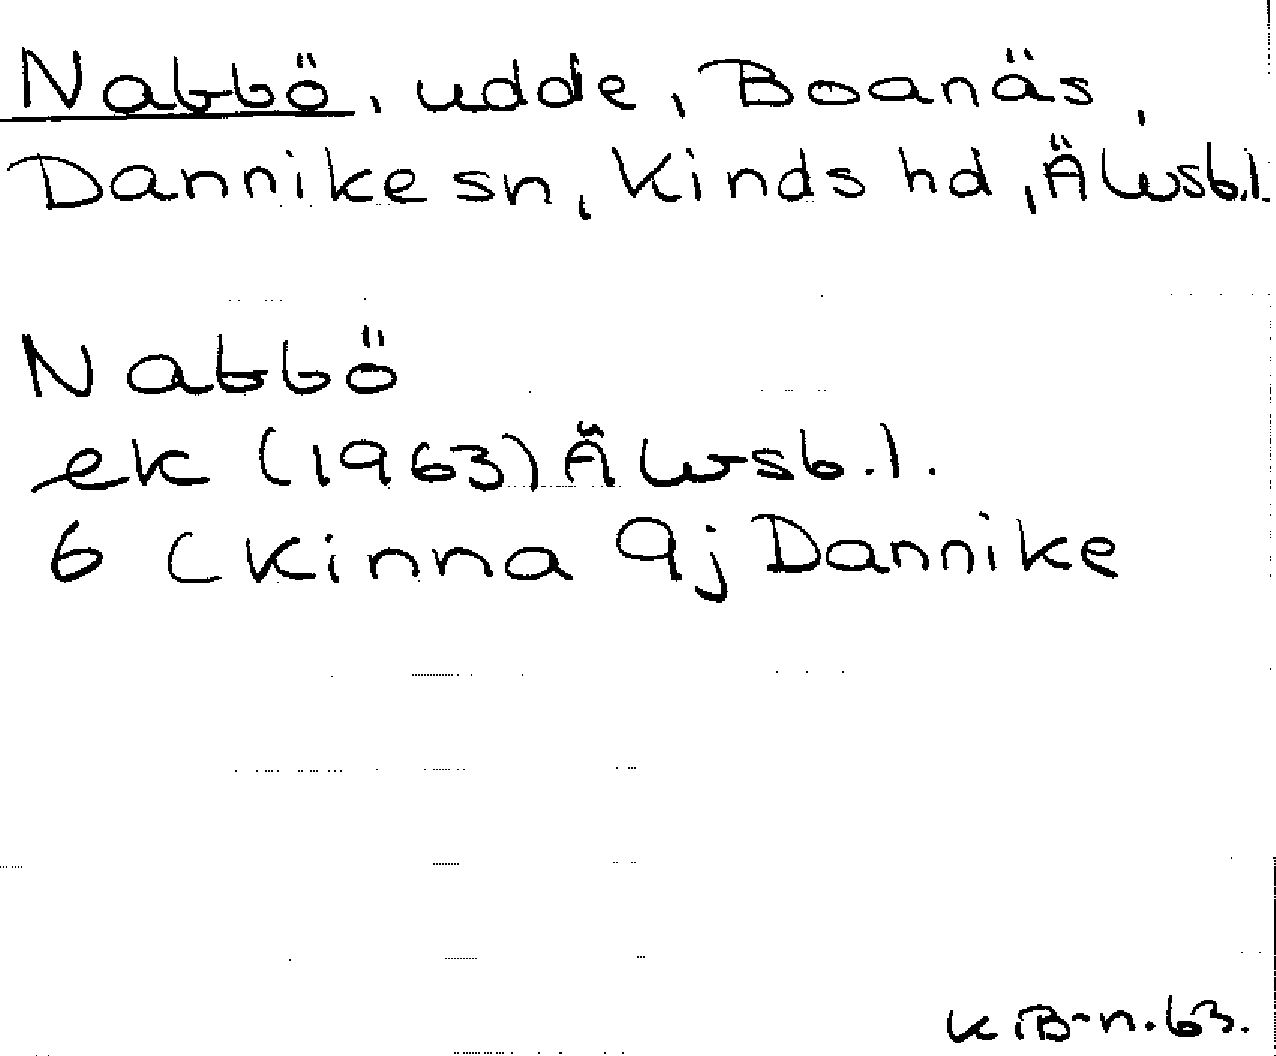 Nabbö, udde, Boanäs,
Dannike sn, Kinds hd, Älvsb.l.
Nabbö
ek (1963) Älvsb.l.
6 (Kinna 9j Dannike
K.B-n.63.